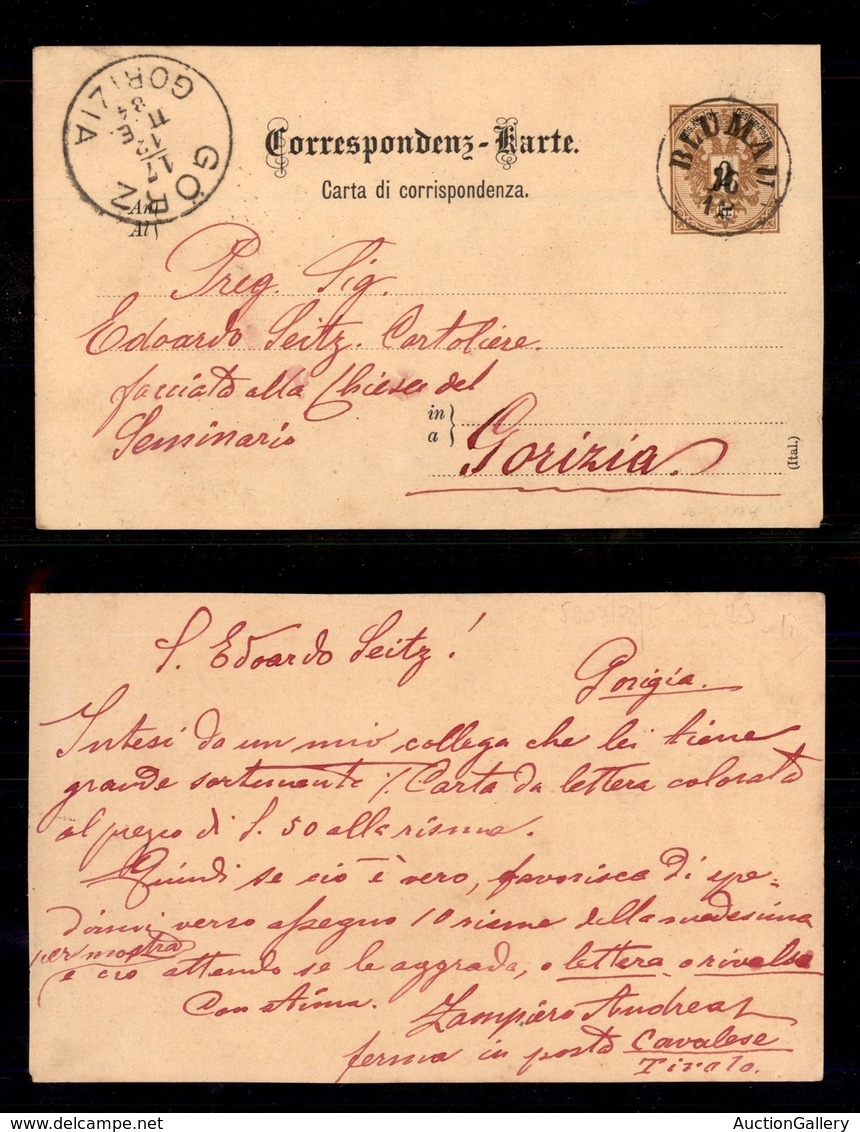 GÖRZ
GORIZIA
17
12
84
Correspondenz-Karte.
Carta di corrispondenza.
BLUMAU
An
Al
Preg. Sig.
Edoardo Seitz. Cartoliere.
facciata alla Chiesa del
in
a
Seminario
Gorizia.
(Ital.)
S. Edoardo Seitz!
Gorizia.
Intesi da un mio collega che lei tiene
grande sortimento Carta da lettera colorata
al prezzo di S. 50 alla risma.
Quindi se ciò è vero, favorisca di spe-
dirmi verso assegno 10 risme della medesima
per mostra
e ciò attendo se le aggrada, o lettera o rivalsa
Con stima. Zampiero Andrea
ferma in posta Cavalese
Tirolo.
AuctionGallery